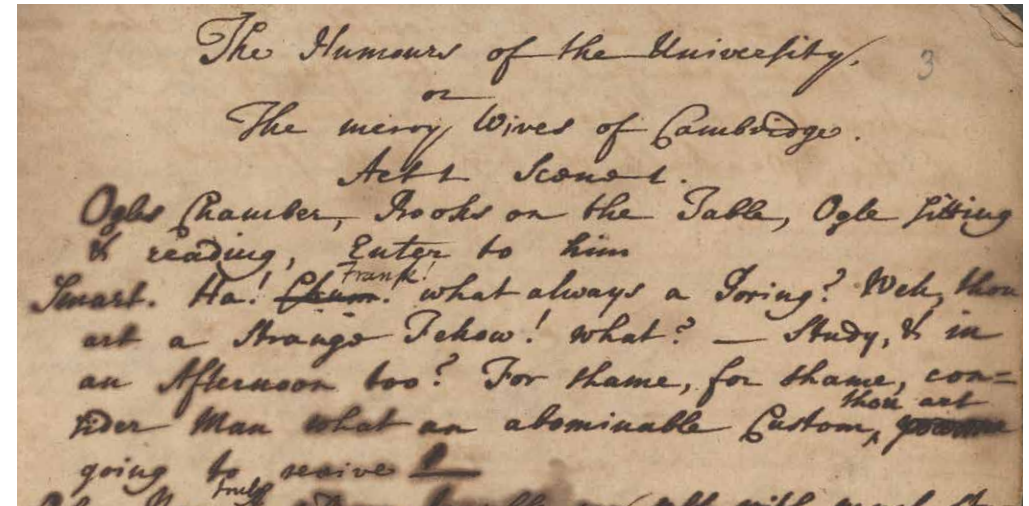 The Humours of the University.
3
or
The merry Wives of Cambridge.
Act 1 Scene 1.
Ogles Chamber, Books on the Table, Ogle sitting
& reading, Enter to him
Frank!
Smart. Ha! Chum! what always a Poring? Well, thou
art a strange Fellow! what? — Study, & in
an Afternoon too? For shame, for shame, con=
thou art
sider Man what an abominable Custom,
going to revive
truly
with